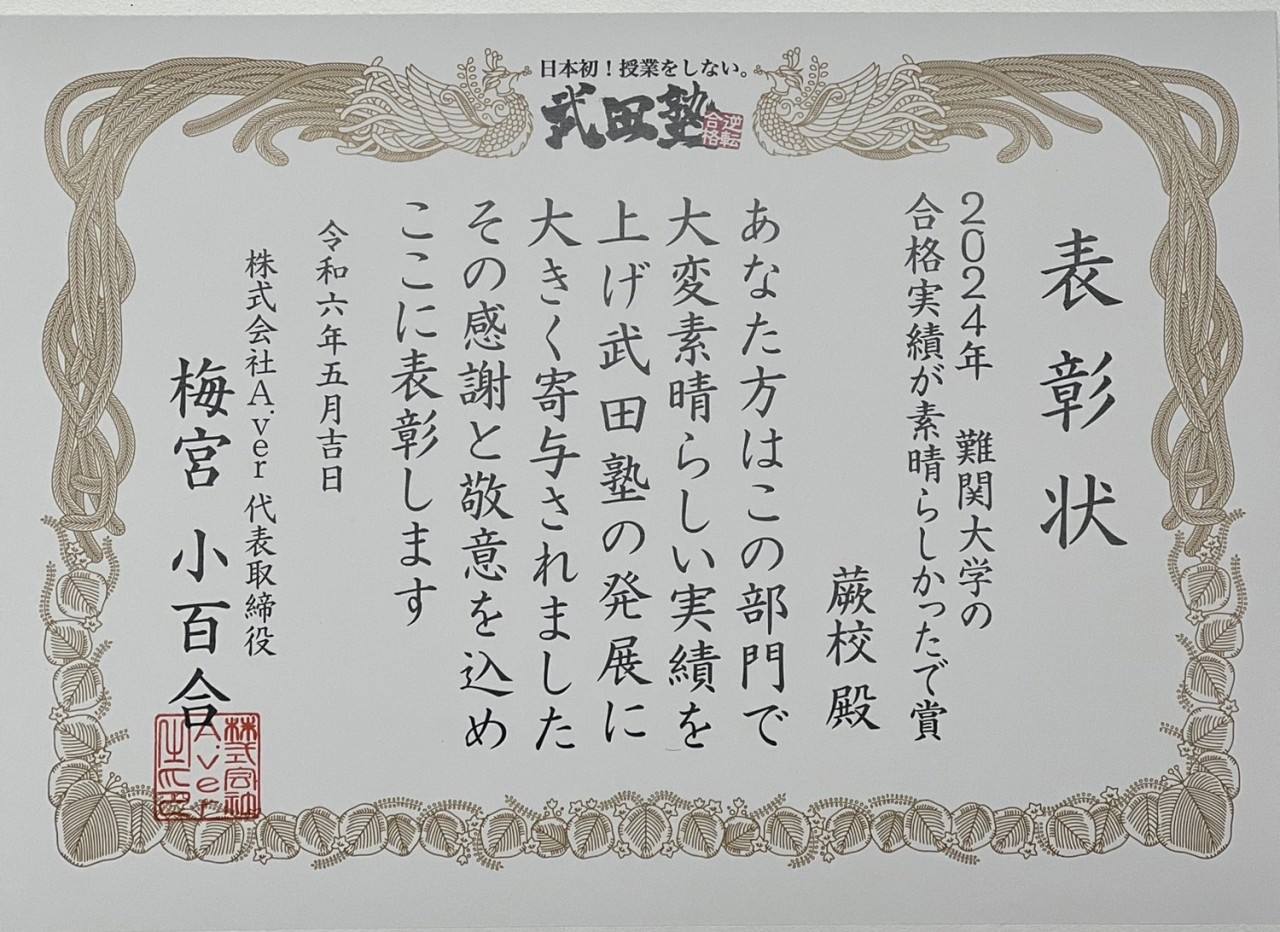 日本初！授業をしない。
武田塾
逆転
合格
表彰状
2024年 難関大学の
合格実績が素晴らしかったで賞
蕨校殿
あなた方はこの部門で
大変素晴らしい実績を
上げ武田塾の発展に
大きく寄与されました
その感謝と敬意を込め
ここに表彰します
令和六年五月吉日
株式会社A.ver 代表取締役
梅宮 小百合
株式会社
A.ver
之印